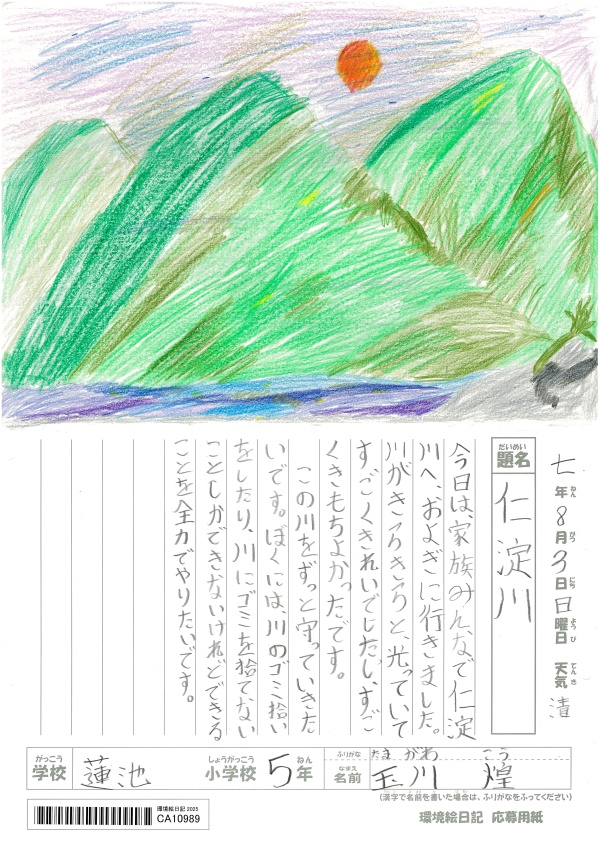 七年8月3日日曜日 天気 清
ねん がつ にち ようび てんき
だいめい
題名
仁淀川
今日は、家族みんなで仁淀
川へ、およぎに行きました。
川がきらきらと、光っていて
すごくきれいでしたし、すご
くきもちよかったです。
この川をずっと守っていきた
いです。ぼくには、川のゴミ拾い
をしたり、川にゴミを捨てない
ことしかできないけれどできる
ことを全力でやりたいです。
がっこう
学校
蓮池
しょうがっこう
小学校
5
ねん
年
ふりがな
たま がわ こう
なまえ
名前
玉川 煌
(漢字で名前を書いた場合は、ふりがなをふってください)
環境絵日記 2025
CA10989
環境絵日記 応募用紙